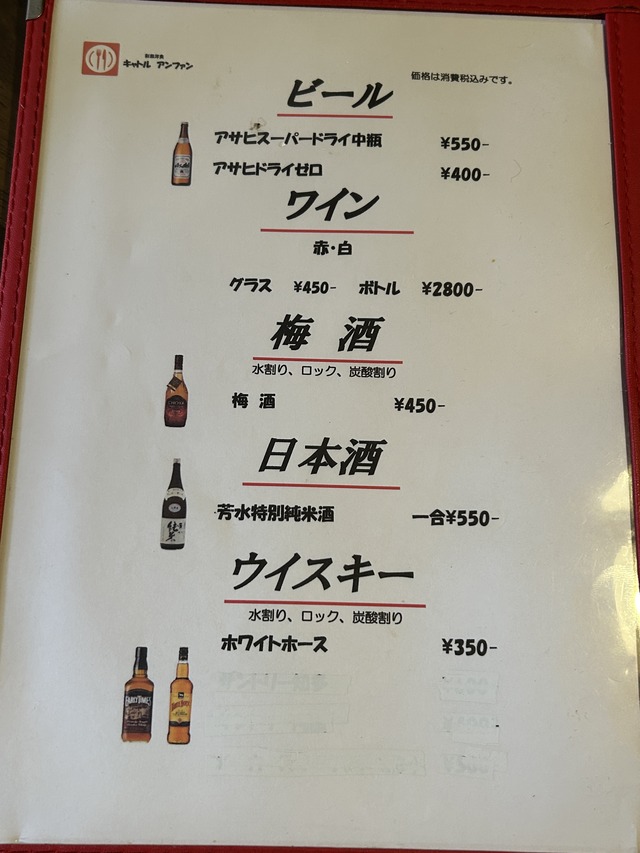 欧風洋食
キャトル アンファン
価格は消費税込みです。
ビール
アサヒスーパードライ中瓶 ¥550-
アサヒドライゼロ ¥400-
ワイン
赤・白
グラス ¥450- ボトル ¥2800-
梅 酒
水割り、ロック、炭酸割り
梅 酒 ¥450-
日本酒
芳水特別純米酒 一合¥550-
ウイスキー
水割り、ロック、炭酸割り
ホワイトホース ¥350-
EARLY TIMES